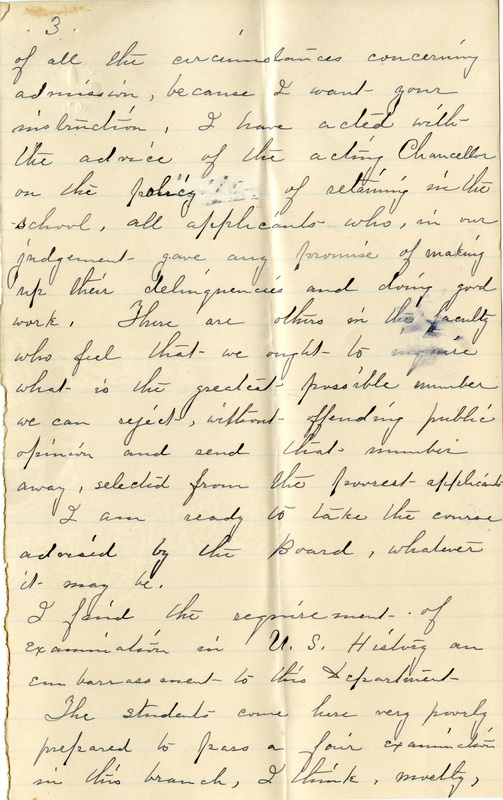 3
of all the circumstances concerning
admission, because I want your
instruction, I have acted with
the advice of the acting Chancellor
on the policy of retaining in the
school, all applicants who, in our
judgement gave any promise of making
up their delinquencies and doing good
work. There are others in the faculty
who feel that we ought to inquire
what is the greatest possible number
we can reject, without offending public
opinion and send that number
away, selected from the poorest applicants
I am ready to take the course
advised by the Board, whatever
it may be.
I find the requirement of
examination in U. S. History an
embarrassment to this Department
The students come here very poorly
prepared to pass a fair examination
in this branch, I think, mostly,